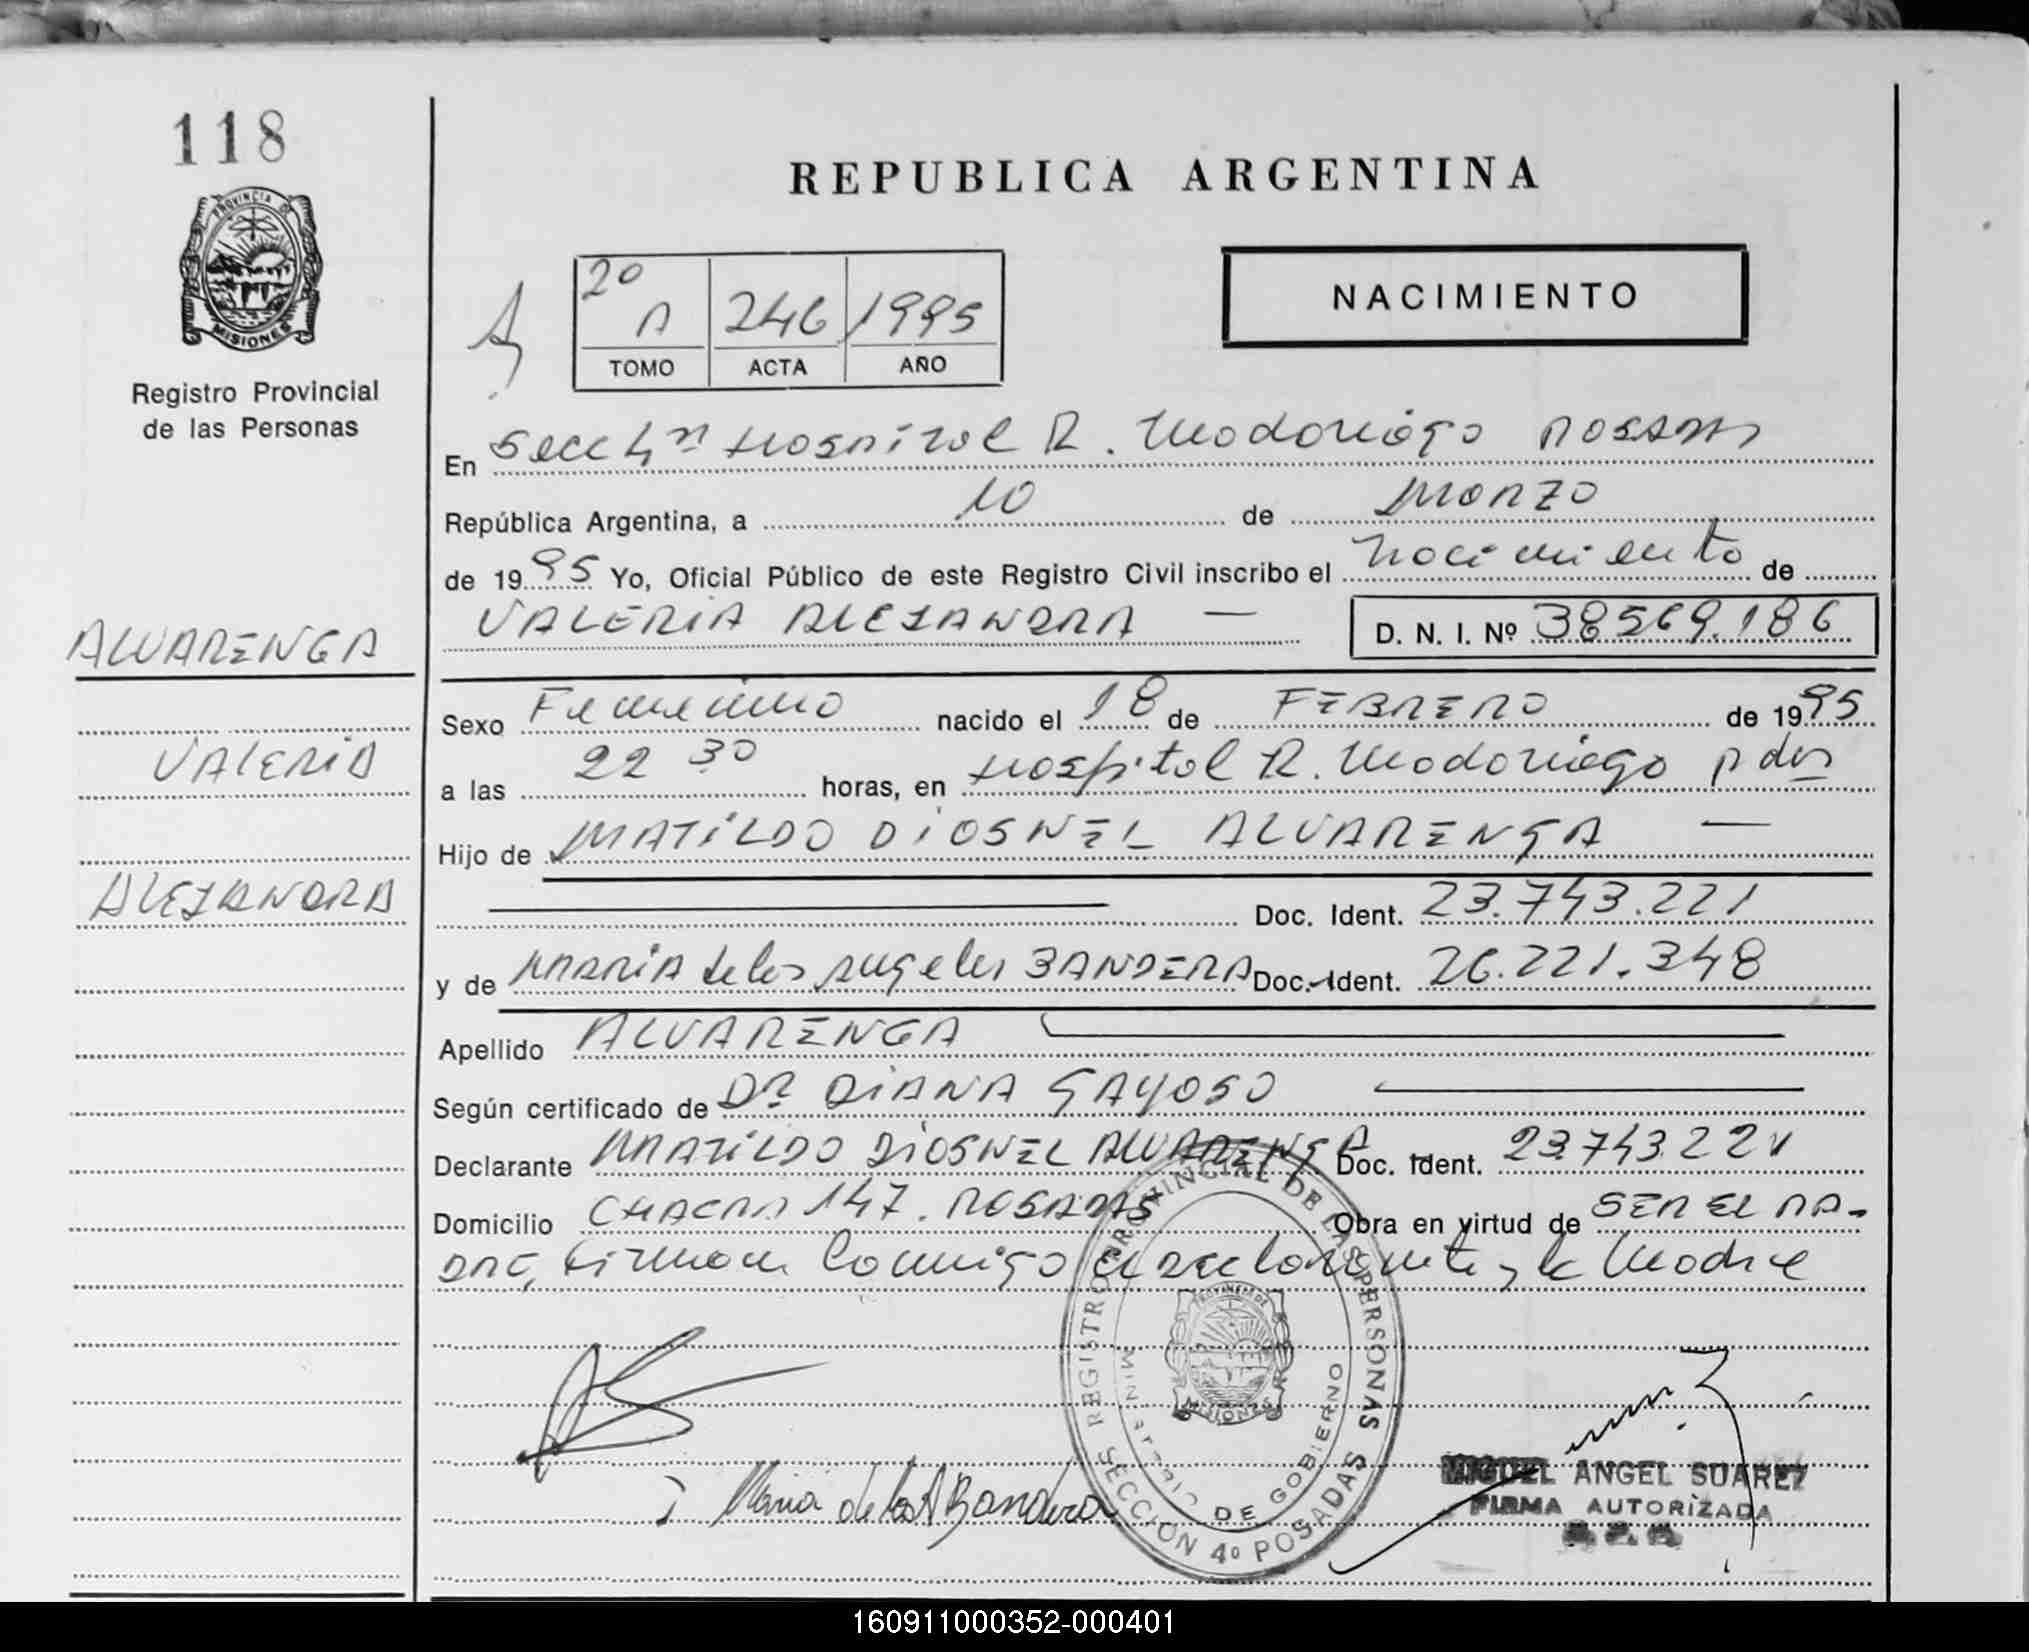 118
PROVINCIA DE
MISIONES
Registro Provincial
de las Personas
REPUBLICA ARGENTINA
2º A 246 1995
TOMO ACTA AÑO
NACIMIENTO
En Secc 4ª Hospital R. Madariaga Posadas
República Argentina, a 10 de Marzo
de 1995 Yo, Oficial Público de este Registro Civil inscribo el nacimiento de
VALERIA ALEJANDRA — D. N. I. Nº 38569.186
ALVARENGA
VALERIA
ALEJANDRA
Sexo Femenino nacido el 18 de FEBRERO de 1995
a las 22 30 horas, en Hospital R. Madariaga Pdas
Hijo de MATILDO DIOSNEL ALVARENGA —
Doc. Ident. 23.743.221
y de MARIA de los Angeles BANDERA Doc. Ident. 26.221.348
Apellido ALVARENGA
Según certificado de Dra DIANA GAYOSO
Declarante MATILDO DIOSNEL ALVARENGA Doc. Ident. 23.743.221
Domicilio CHACRA 147. POSADAS Obra en virtud de SER EL PA-
DRE, Firman Conmigo el declarante y la Madre
REGISTRO PROVINCIAL DE LAS PERSONAS
MINISTERIO DE GOBIERNO
PROVINCIA DE
MISIONES
SECCIÓN 4º POSADAS
Maria de los A Bandera
MIGUEL ANGEL SUAREZ
FIRMA AUTORIZADA
160911000352-000401